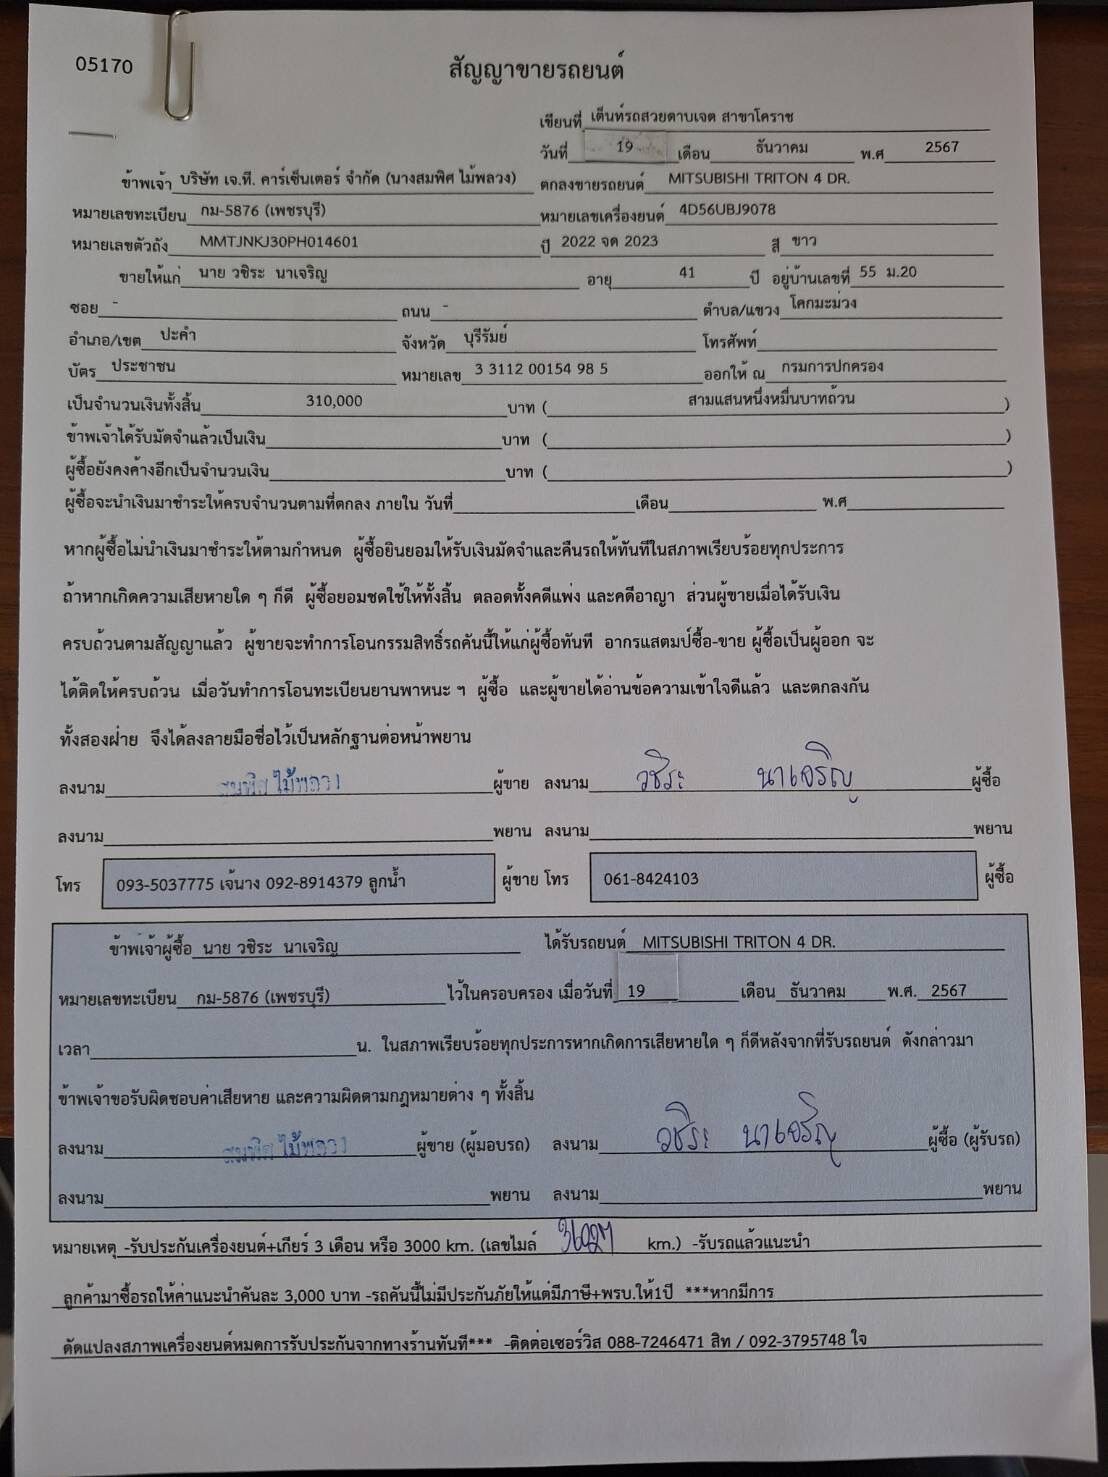 05170
สัญญาขายรถยนต์
เขียนที่ เต็นท์รถสวยดาบเจต สาขาโคราช
วันที่ 19 เดือน ธันวาคม พ.ศ 2567
ข้าพเจ้า บริษัท เจ.ที. คาร์เซ็นเตอร์ จำกัด (นางสมพิศ ไม้พลวง) ตกลงขายรถยนต์ MITSUBISHI TRITON 4 DR.
หมายเลขทะเบียน กม-5876 (เพชรบุรี) หมายเลขเครื่องยนต์ 4D56UBJ9078
หมายเลขตัวถัง MMTJNKJ30PH014601 ปี 2022 จด 2023 สี ขาว
ขายให้แก่ นาย วชิระ นาเจริญ อายุ 41 ปี อยู่บ้านเลขที่ 55 ม.20
ซอย - ถนน - ตำบล/แขวง โคกมะม่วง
อำเภอ/เขต ปะคำ จังหวัด บุรีรัมย์ โทรศัพท์
บัตร ประชาชน หมายเลข 3 3112 00154 98 5 ออกให้ ณ กรมการปกครอง
เป็นจำนวนเงินทั้งสิ้น 310,000 บาท ( สามแสนหนึ่งหมื่นบาทถ้วน )
ข้าพเจ้าได้รับมัดจำแล้วเป็นเงิน บาท ( )
ผู้ซื้อยังคงค้างอีกเป็นจำนวนเงิน บาท ( )
ผู้ซื้อจะนำเงินมาชำระให้ครบจำนวนตามที่ตกลง ภายใน วันที่ เดือน พ.ศ
หากผู้ซื้อไม่นำเงินมาชำระให้ตามกำหนด ผู้ซื้อยินยอมให้รับเงินมัดจำและคืนรถให้ทันทีในสภาพเรียบร้อยทุกประการ
ถ้าหากเกิดความเสียหายใด ๆ ก็ดี ผู้ซื้อยอมชดใช้ให้ทั้งสิ้น ตลอดทั้งคดีแพ่ง และคดีอาญา ส่วนผู้ขายเมื่อได้รับเงิน
ครบถ้วนตามสัญญาแล้ว ผู้ขายจะทำการโอนกรรมสิทธิ์รถคันนี้ให้แก่ผู้ซื้อทันที อากรแสตมป์ซื้อ-ขาย ผู้ซื้อเป็นผู้ออก จะ
ได้ติดให้ครบถ้วน เมื่อวันทำการโอนทะเบียนยานพาหนะ ฯ ผู้ซื้อ และผู้ขายได้อ่านข้อความเข้าใจดีแล้ว และตกลงกัน
ทั้งสองฝ่าย จึงได้ลงลายมือชื่อไว้เป็นหลักฐานต่อหน้าพยาน
ลงนาม สมพิศ ไม้พลวง ผู้ขาย ลงนาม วชิระ นาเจริญ ผู้ซื้อ
ลงนาม พยาน ลงนาม พยาน
โทร 093-5037775 เจ้นาง 092-8914379 ลูกน้ำ ผู้ขาย โทร 061-8424103 ผู้ซื้อ
ข้าพเจ้าผู้ซื้อ นาย วชิระ นาเจริญ ได้รับรถยนต์ MITSUBISHI TRITON 4 DR.
หมายเลขทะเบียน กม-5876 (เพชรบุรี) ไว้ในครอบครอง เมื่อวันที่ 19 เดือน ธันวาคม พ.ศ. 2567
เวลา น. ในสภาพเรียบร้อยทุกประการหากเกิดการเสียหายใด ๆ ก็ดีหลังจากที่รับรถยนต์ ดังกล่าวมา
ข้าพเจ้าขอรับผิดชอบค่าเสียหาย และความผิดตามกฎหมายต่าง ๆ ทั้งสิ้น
ลงนาม สมพิศ ไม้พลวง ผู้ขาย (ผู้มอบรถ) ลงนาม วชิระ นาเจริญ ผู้ซื้อ (ผู้รับรถ)
ลงนาม พยาน ลงนาม พยาน
หมายเหตุ -รับประกันเครื่องยนต์+เกียร์ 3 เดือน หรือ 3000 km. (เลขไมล์ km.) -รับรถแล้วแนะนำ
ลูกค้ามาซื้อรถให้ค่าแนะนำคันละ 3,000 บาท -รถคันนี้ไม่มีประกันภัยให้แต่มีภาษี+พรบ.ให้1ปี ***หากมีการ
ดัดแปลงสภาพเครื่องยนต์หมดการรับประกันจากทางร้านทันที*** -ติดต่อเซอร์วิส 088-7246471 สิท / 092-3795748 ใจ